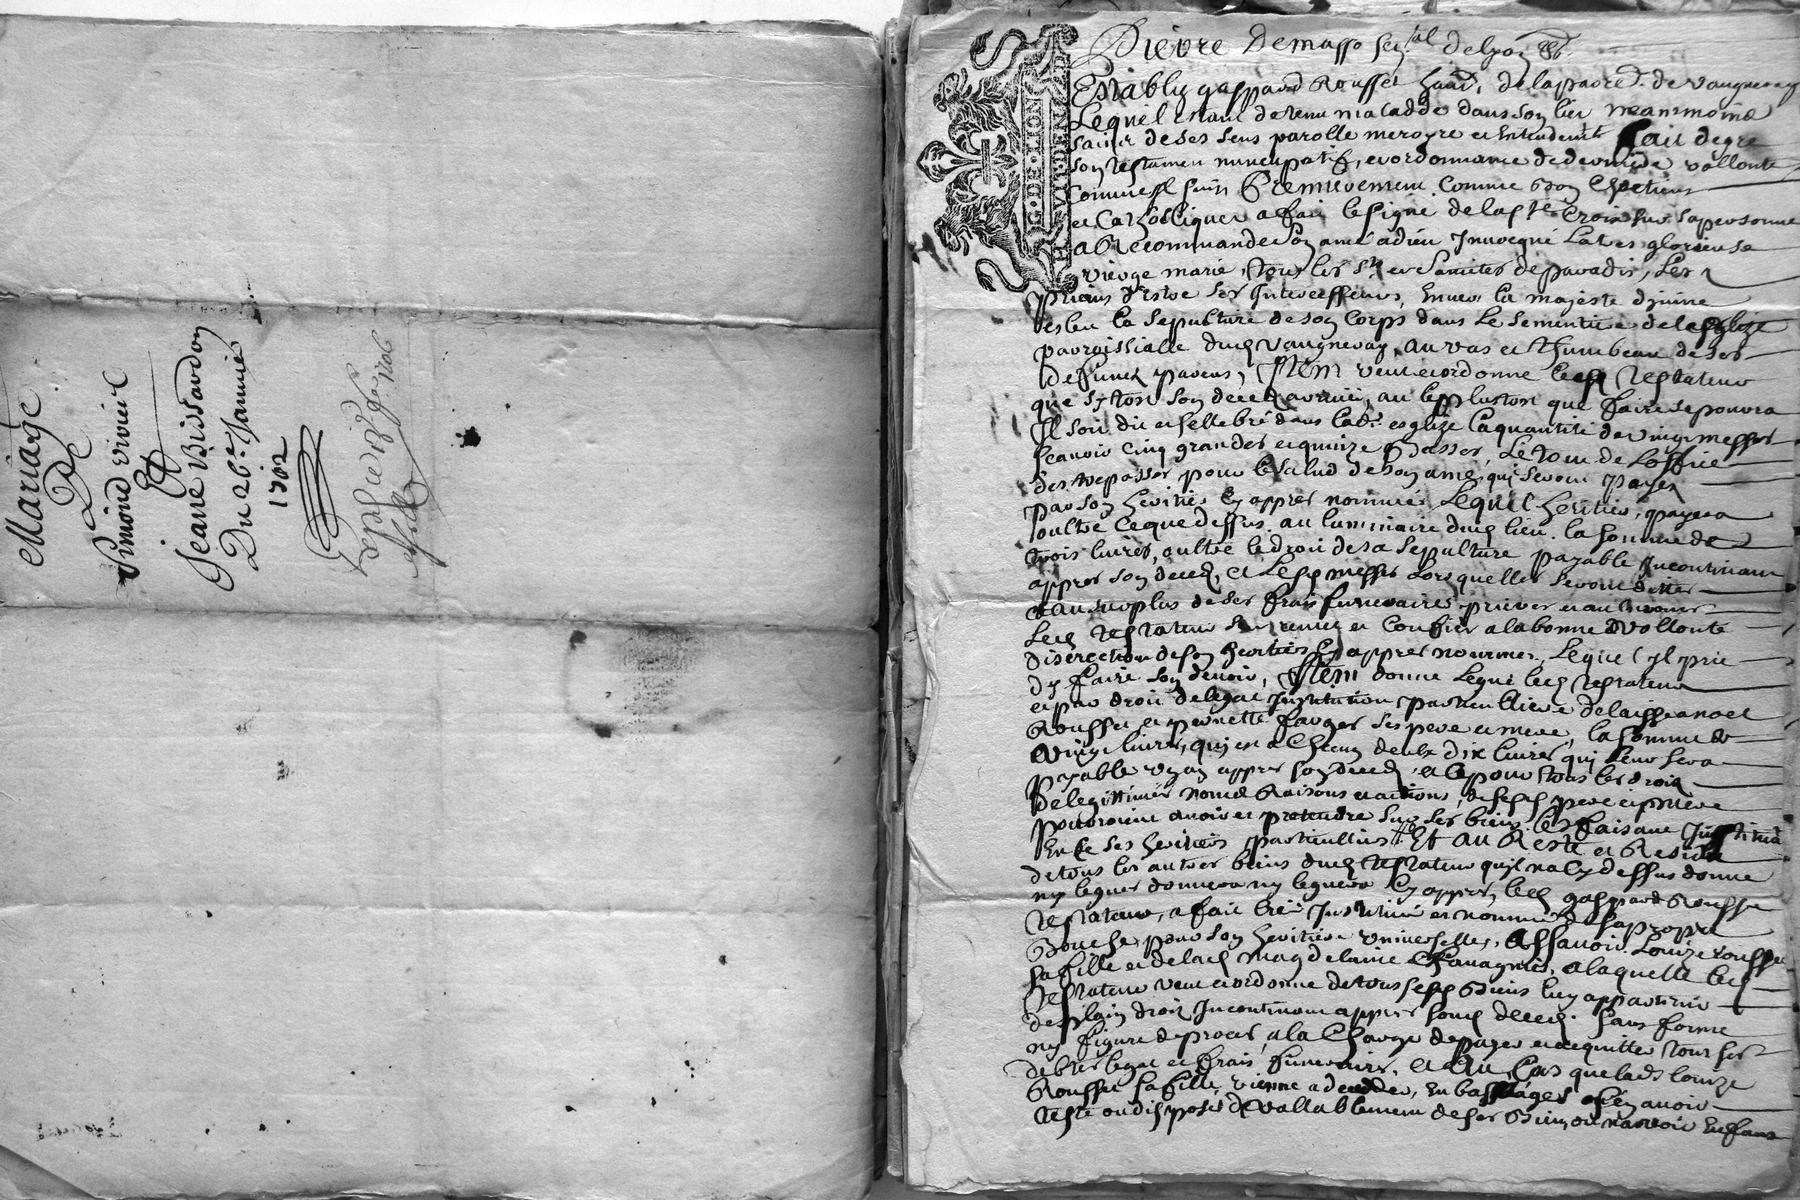 Mariage
De
Simond vivier
Et
Jeane Bissardon
Du 26e Janvier
1702
G. DE LION
HVIT DEN
Pievre Demasso sen.al delyon
Establiy gaspard Rousset de la parr. de vaugneray
Lequel estant detenu maladde dans son lict neanmoins
sain de ses sens parolle memoyre et entendement fait de gre
son testament nuncupatif, et ordonnance de derniere vollonte
Comme sensuit Premierement Comme bon Chretien
et Catholique a fait le signe de la ste Croix sur sa personne
a Recommande son ame a dieu Invocqué la tres glorieuse
vierge marie, tous les Sts et Saintes de paradis, Les
priant d'estre ses Intercesseurs, envers la majeste divine
esleu la sepulture de son Corps dans Le Sementiere de leglize
parroissialle dud vaugneray, au vas et thumbeau de ses
defunts parens, Item veut et ordonne led testateur
que sy tost son deced arrivé, au leplustost que faire se pourra
Il soit dit et cellebré dans lad. esglize la quantité de vingt messes
scavoir Cinq grandes et quinze Basses, Le tout de Loffice
des trepasses pour le salud de son ame qui seront payes
par son heritier Cy appres nommé Lequel heritier, payera
oultre ce que dessus au luminaire dud lieu la somme de
trois livres, oultre le droit de sa sepulture payable Incontinant
appres son deced, et Lesd messes Lorsquelles seront dittes
et au surplus de ses frais funeraires
Led testateur sen remet et Confie a la bonne vollonte
discrection de son heritier Cy appres nommer, Lequel il prie
dy faire son devoir, Item donne Legue led testateur
et par droit de legat Institution particulliere delaisse a noel
Rousset et pernette ses pere et mere, la somme de
vingt livres, qui est a Chacun deulx dix livres qui leur sera
payable un an appres son deced et ce pour tous les droits
de legittimes noms Raisons et actions, que sesd pere et mere
pourroient avoir et pretendre sur ses biens les faisant
en ce ses heritiers particulliers Et au Reste et Residu
de tous les autres biens dud testateur quil na Cy dessus donne
ny legue donnera ny leguera Cy appres, led gaspard Rousset
testateur, a fait cree Institué et nommé de sa propre
Bouche pour son heritiere universelle, Assavoir Louize rousset
sa fille et de lad magdelaine Chavagnier, a laquelle led
testateur veut et ordonne de tous sesd Biens luy appartenir
de plain droit Incontinant appres sond deced sans forme
ny figure de proces, a la Charge de payer et acquitter tous ses
debtes legat et frais funeraires, et Au Cas que lad Louize
Rousset sa fille, vienne a decedder, en bas ages sans avoir
teste ou disposer vallablement de ses Biens ou navoir Enfans